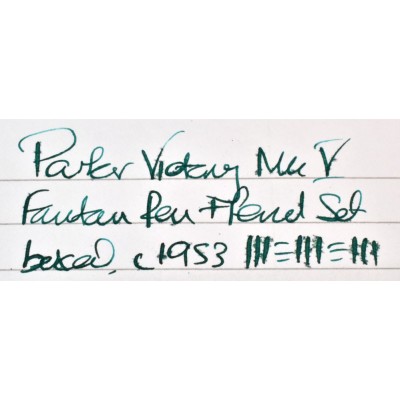 Parker Victory Mk V
Fountain Pen + Pencil Set
boxed, c1953